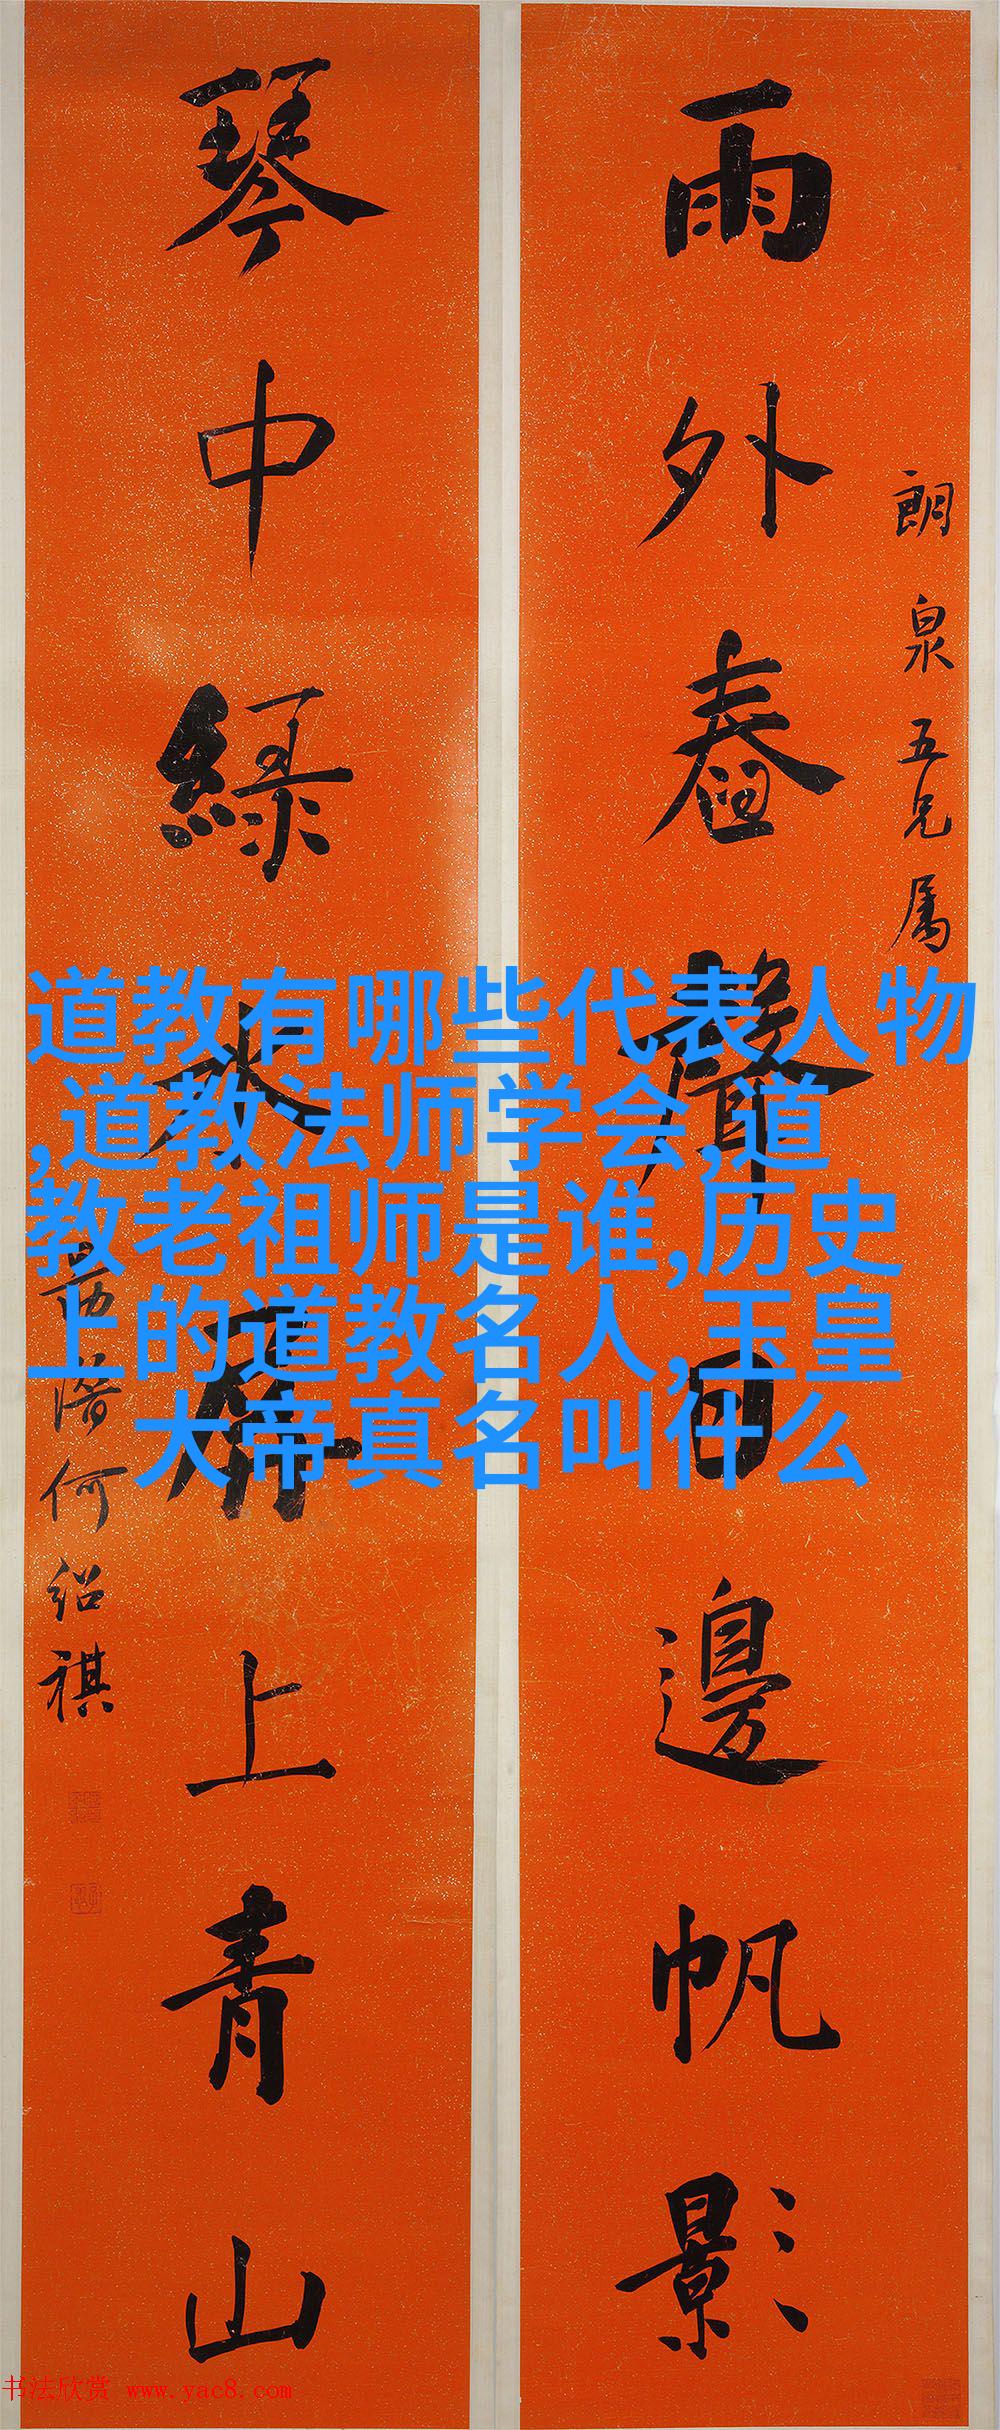 雨外舂聲日邊帆影
朗泉五兄属
琴中綠水屏上青山
何紹祺
道教有哪些代表人物
,道教法师学会,道
教老祖师是谁,历史
上的道教名人,玉皇
大帝真名叫什么
书法欣赏 www.yac8.com